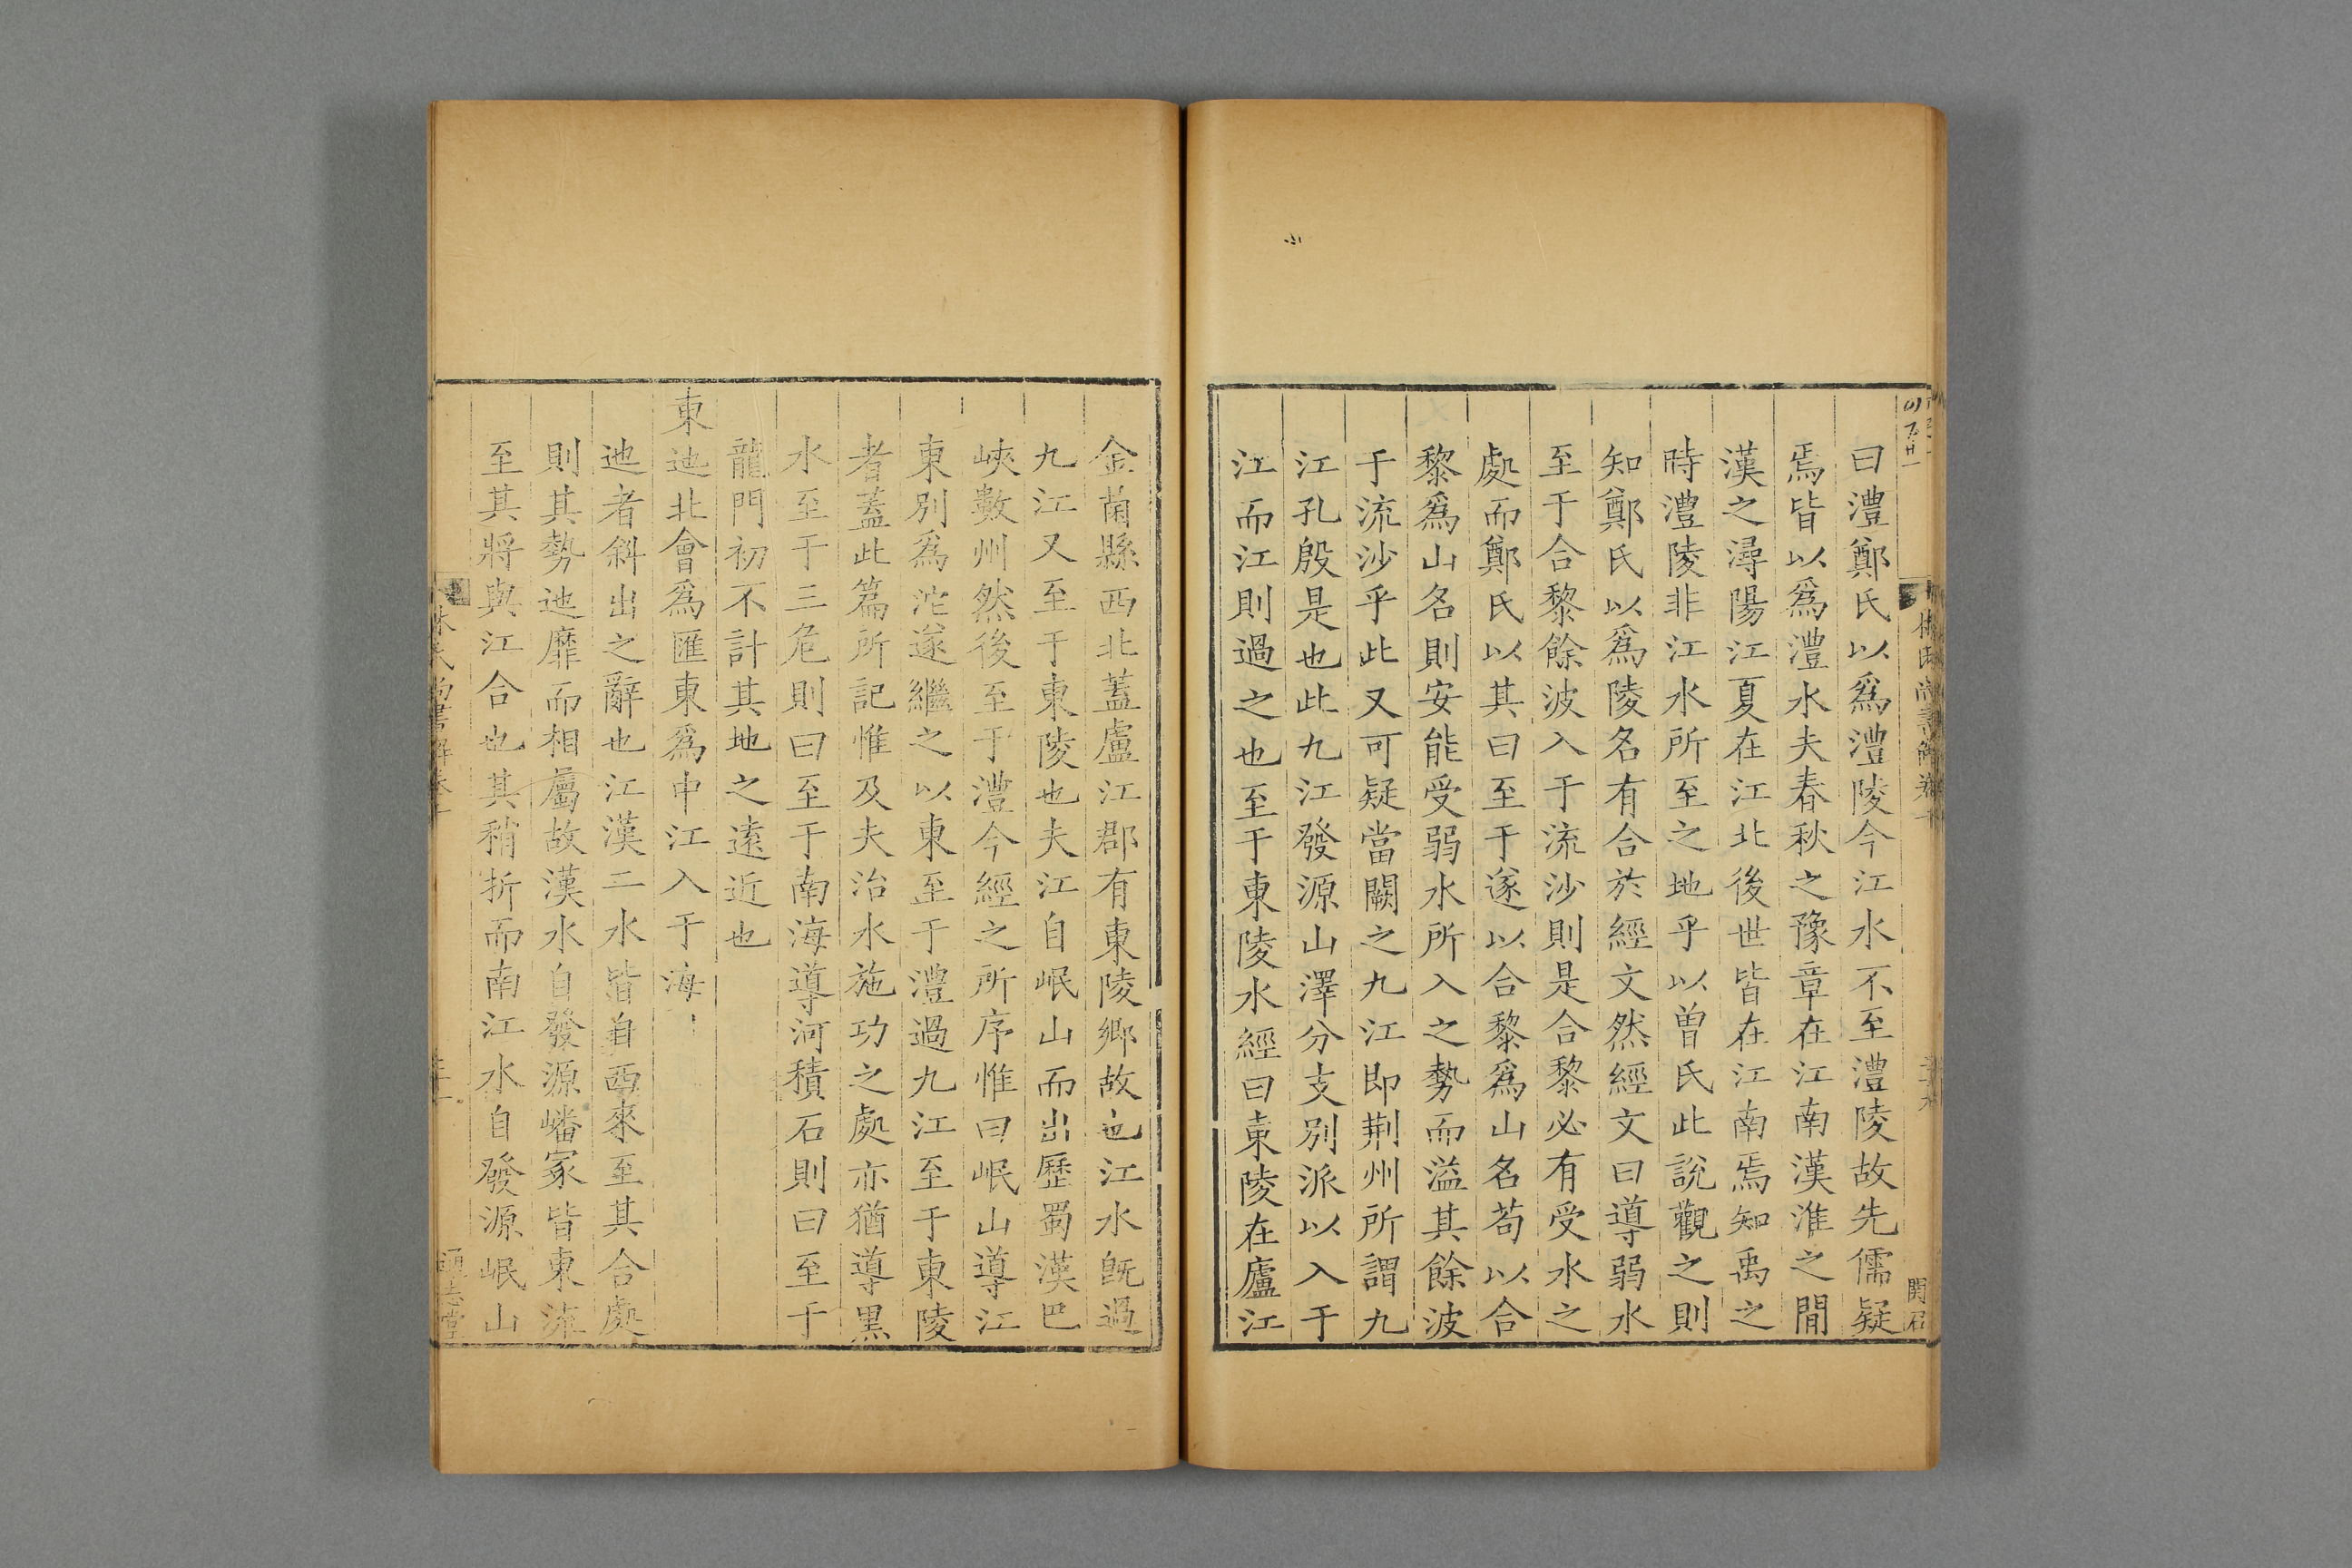 曰澧鄭氏以爲澧陵今江水不至澧陵故先儒疑
焉皆以爲澧水夫春秋之豫章在江南漢淮之間
漢之潯陽江夏在江北後世皆在江南焉知禹之
時澧陵非江水所至之地乎以曽氏此說觀之則
知鄭氏以爲陵名有合於經文然經文曰導弱水
至于合黎餘波入于流沙則是合黎必有受水之
處而鄭氏以其曰至于遂以合黎爲山名苟以合
黎爲山名則安能受弱水所入之勢而溢其餘波
于流沙乎此又可疑當闕之九江即荆州所謂九
江孔殷是也此九江發源山澤分支別派以入于
江而江則過之也至于東陵水經曰東陵在廬江
金蘭縣西北蓋盧江郡有東陵鄉故也江水旣過
九江又至于東陵也夫江自岷山而出歷蜀漢巴
峽數州然後至于澧今經之所序惟曰岷山導江
東別爲沱遂繼之以東至于澧過九江至于東陵
者蓋此篇所記惟及夫治水施功之處亦猶導黑
水至于三危則曰至于南海導河積石則曰至于
龍門初不計其地之遠近也
東迆北會爲匯東爲中江入于海
迆者斜出之辭也江漢二水皆自西來至其合處
則其勢迆靡而相屬故漢水自發源嶓冢皆東流
至其將與江合也其稍折而南江水自發源岷山